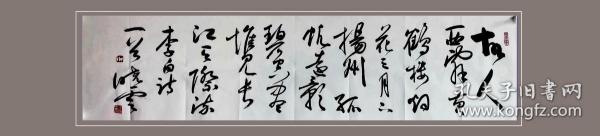 故人
西辞黄
鹤楼烟
花三月下
扬州孤
帆远影
碧空尽
惟见长
江天际流
李白诗
晓云
孔夫子旧书网
www.kongfz.com